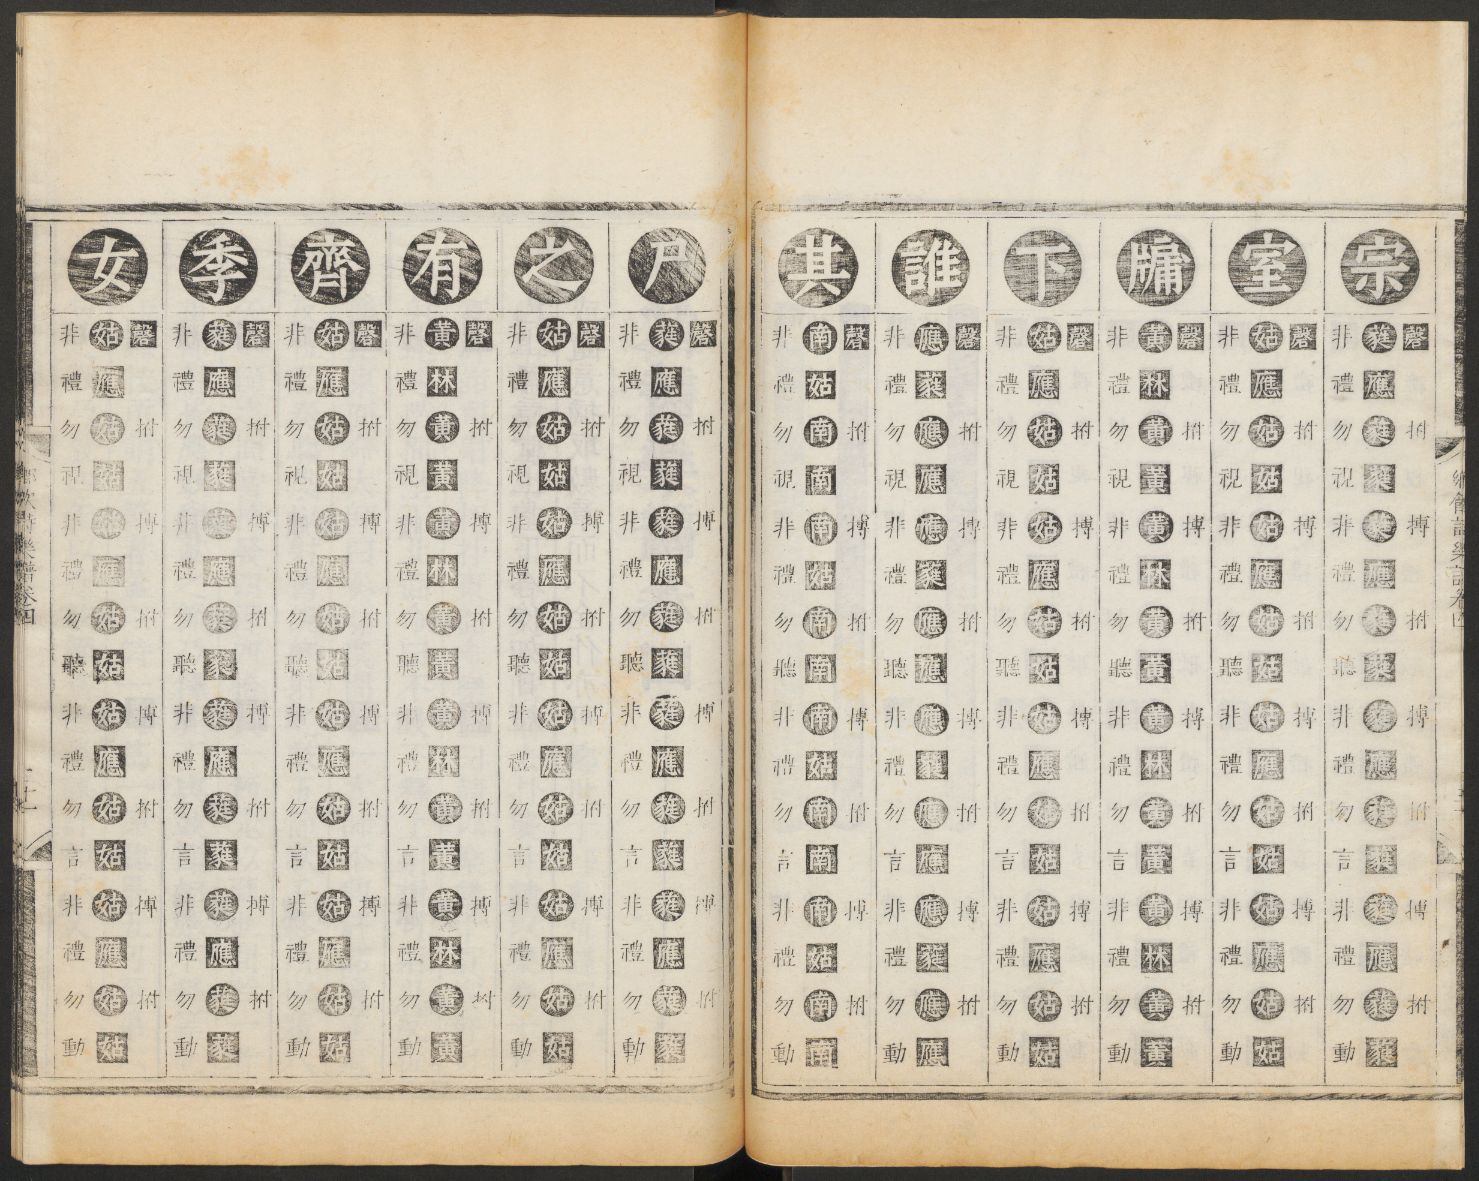 鄉飲詩樂譜卷四
宗
磬拊搏拊搏拊搏拊
蕤應蕤蕤蕤應蕤蕤蕤應蕤蕤蕤應蕤蕤
非禮勿視非禮勿聽非禮勿言非禮勿動
室
磬拊搏拊搏拊搏拊
姑應姑姑姑應姑姑姑應姑姑姑應姑姑
非禮勿視非禮勿聽非禮勿言非禮勿動
牖
磬拊搏拊搏拊搏拊
黃林黃黃黃林黃黃黃林黃黃黃林黃黃
非禮勿視非禮勿聽非禮勿言非禮勿動
下
磬拊搏拊搏拊搏拊
姑應姑姑姑應姑姑姑應姑姑姑應姑姑
非禮勿視非禮勿聽非禮勿言非禮勿動
誰
磬拊搏拊搏拊搏拊
應蕤應應應蕤應應應蕤應應應蕤應應
非禮勿視非禮勿聽非禮勿言非禮勿動
其
磬拊搏拊搏拊搏拊
南姑南南南姑南南南姑南南南姑南南
非禮勿視非禮勿聽非禮勿言非禮勿動
尸
磬拊搏拊搏拊搏拊
蕤應蕤蕤蕤應蕤蕤蕤應蕤蕤蕤應蕤蕤
非禮勿視非禮勿聽非禮勿言非禮勿動
之
磬拊搏拊搏拊搏拊
姑應姑姑姑應姑姑姑應姑姑姑應姑姑
非禮勿視非禮勿聽非禮勿言非禮勿動
有
磬拊搏拊搏拊搏拊
黃林黃黃黃林黃黃黃林黃黃黃林黃黃
非禮勿視非禮勿聽非禮勿言非禮勿動
齊
磬拊搏拊搏拊搏拊
姑應姑姑姑應姑姑姑應姑姑姑應姑姑
非禮勿視非禮勿聽非禮勿言非禮勿動
季
磬拊搏拊搏拊搏拊
蕤應蕤蕤蕤應蕤蕤蕤應蕤蕤蕤應蕤蕤
非禮勿視非禮勿聽非禮勿言非禮勿動
女
磬拊搏拊搏拊搏拊
姑應姑姑姑應姑姑姑應姑姑姑應姑姑
非禮勿視非禮勿聽非禮勿言非禮勿動
鄉飲詩樂譜卷四